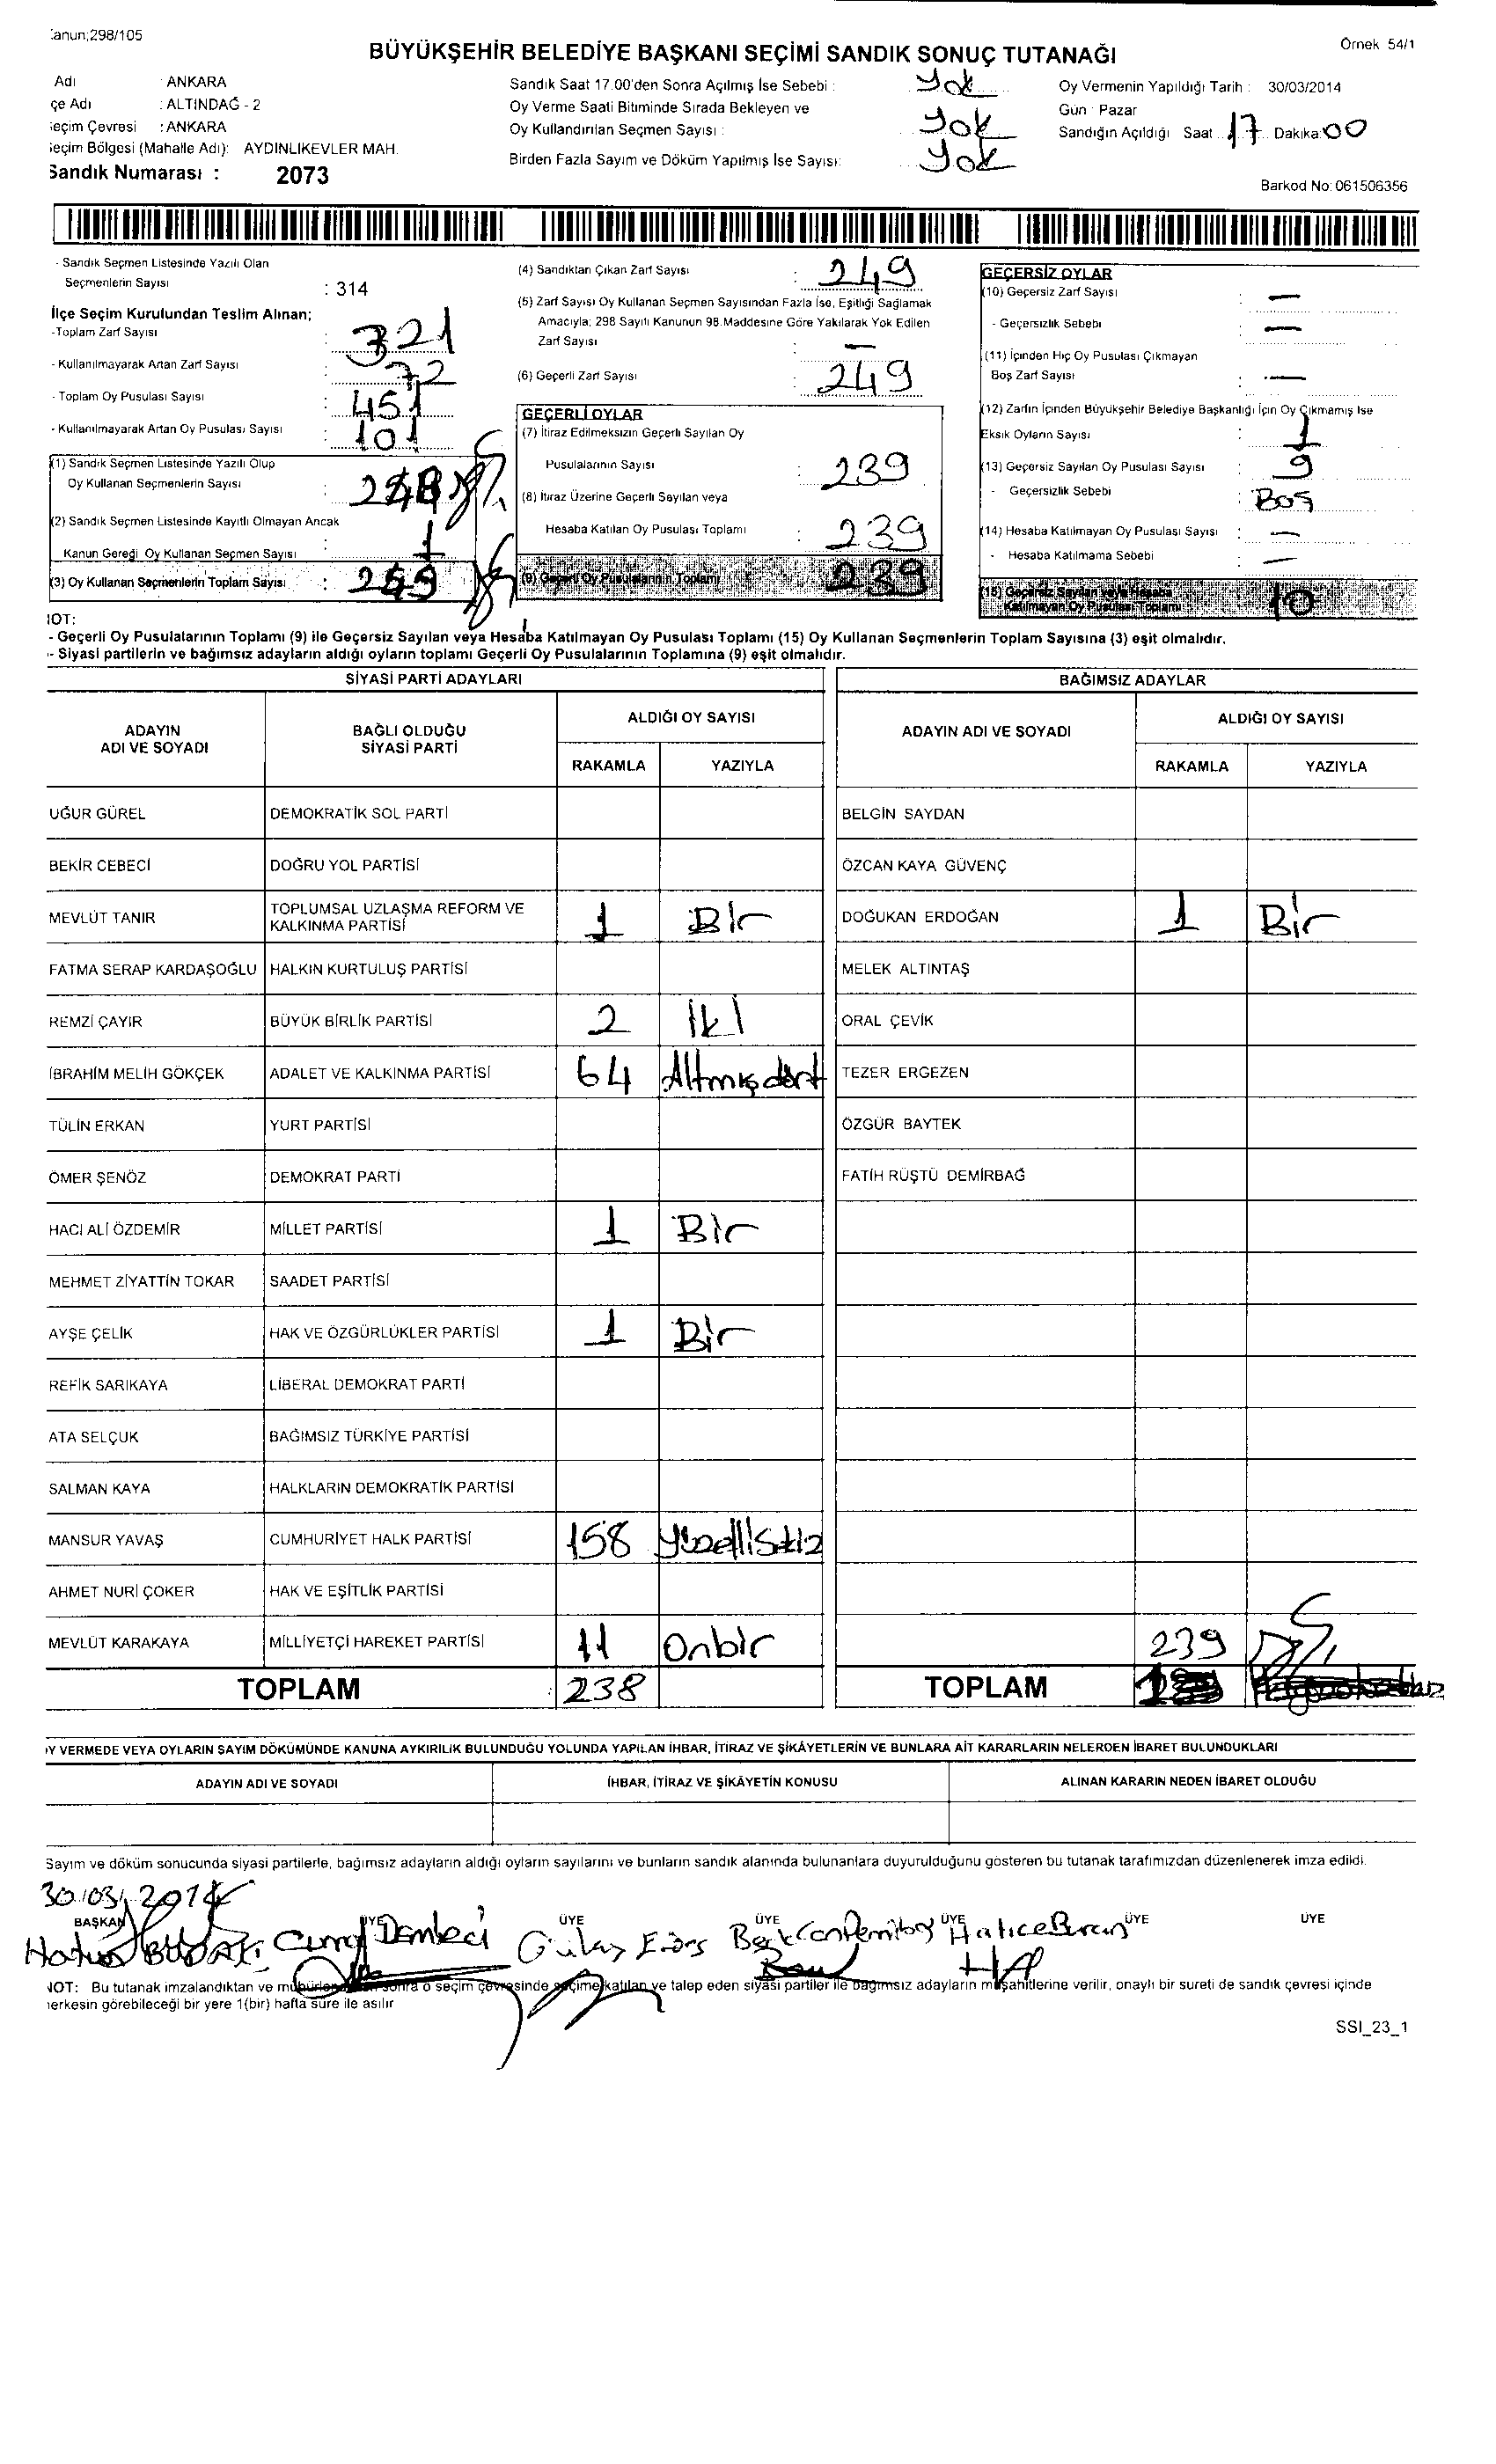 anun;298/105
Örnek 54/1
BÜYÜKŞEHİR BELEDİYE BAŞKANI SEÇİMİ SANDIK SONUÇ TUTANAĞI
Adı : ANKARA
çe Adı : ALTINDAĞ - 2
eçim Çevresi : ANKARA
eçim Bölgesi (Mahalle Adı): AYDINLIKEVLER MAH.
Sandık Numarası : 2073
Sandık Saat 17.00'den Sonra Açılmış İse Sebebi : Yok
Oy Verme Saati Bitiminde Sırada Bekleyen ve
Oy Kullandırılan Seçmen Sayısı : Yok
Birden Fazla Sayım ve Döküm Yapılmış İse Sayısı: Yok
Oy Vermenin Yapıldığı Tarih : 30/03/2014
Gün : Pazar
Sandığın Açıldığı Saat 17 Dakika: 00
Barkod No: 061506356
- Sandık Seçmen Listesinde Yazılı Olan
Seçmenlerin Sayısı : 314
İlçe Seçim Kurulundan Teslim Alınan;
-Toplam Zarf Sayısı : 321
- Kullanılmayarak Artan Zarf Sayısı : 72
- Toplam Oy Pusulası Sayısı : 451
- Kullanılmayarak Artan Oy Pusulası Sayısı : 101
(1) Sandık Seçmen Listesinde Yazılı Olup
Oy Kullanan Seçmenlerin Sayısı : 248
(2) Sandık Seçmen Listesinde Kayıtlı Olmayan Ancak
Kanun Gereği Oy Kullanan Seçmen Sayısı : 1
(3) Oy Kullanan Seçmenlerin Toplam Sayısı : 249
(4) Sandıktan Çıkan Zarf Sayısı : 249
(5) Zarf Sayısı Oy Kullanan Seçmen Sayısından Fazla İse, Eşitliği Sağlamak
Amacıyla; 298 Sayılı Kanunun 98.Maddesine Göre Yakılarak Yok Edilen
Zarf Sayısı : —
(6) Geçerli Zarf Sayısı : 249
GEÇERLİ OYLAR
(7) İtiraz Edilmeksizin Geçerli Sayılan Oy
Pusulalarının Sayısı : 239
(8) İtiraz Üzerine Geçerli Sayılan veya
Hesaba Katılan Oy Pusulası Toplamı : 239
(9) Geçerli Oy Pusulalarının Toplamı 239
GEÇERSİZ OYLAR
(10) Geçersiz Zarf Sayısı : —
- Geçersizlik Sebebi : —
(11) İçinden Hiç Oy Pusulası Çıkmayan
Boş Zarf Sayısı : —
(12) Zarfın İçinden Büyükşehir Belediye Başkanlığı İçin Oy Çıkmamış İse
Eksik Oyların Sayısı : 1
(13) Geçersiz Sayılan Oy Pusulası Sayısı : 9
- Geçersizlik Sebebi : Boş
(14) Hesaba Katılmayan Oy Pusulası Sayısı : —
- Hesaba Katılmama Sebebi : —
(15) Geçersiz Sayılan veya Hesaba
Katılmayan Oy Pusulası Toplamı 10
NOT:
- Geçerli Oy Pusulalarının Toplamı (9) ile Geçersiz Sayılan veya Hesaba Katılmayan Oy Pusulası Toplamı (15) Oy Kullanan Seçmenlerin Toplam Sayısına (3) eşit olmalıdır.
- Siyasi partilerin ve bağımsız adayların aldığı oyların toplamı Geçerli Oy Pusulalarının Toplamına (9) eşit olmalıdır.
SİYASİ PARTİ ADAYLARI BAĞIMSIZ ADAYLAR
ADAYIN ADI VE SOYADI BAĞLI OLDUĞU SİYASİ PARTİ ALDIĞI OY SAYISI ADAYIN ADI VE SOYADI ALDIĞI OY SAYISI
RAKAMLA YAZIYLA RAKAMLA YAZIYLA
UĞUR GÜREL DEMOKRATİK SOL PARTİ BELGİN SAYDAN
BEKİR CEBECİ DOĞRU YOL PARTİSİ ÖZCAN KAYA GÜVENÇ
MEVLÜT TANIR TOPLUMSAL UZLAŞMA REFORM VE KALKINMA PARTİSİ 1 Bir DOĞUKAN ERDOĞAN 1 Bir
FATMA SERAP KARDAŞOĞLU HALKIN KURTULUŞ PARTİSİ MELEK ALTINTAŞ
REMZİ ÇAYIR BÜYÜK BİRLİK PARTİSİ 2 İki ORAL ÇEVİK
İBRAHİM MELİH GÖKÇEK ADALET VE KALKINMA PARTİSİ 64 Altmışdört TEZER ERGEZEN
TÜLİN ERKAN YURT PARTİSİ ÖZGÜR BAYTEK
ÖMER ŞENÖZ DEMOKRAT PARTİ FATİH RÜŞTÜ DEMİRBAĞ
HACI ALİ ÖZDEMİR MİLLET PARTİSİ 1 Bir
MEHMET ZİYATTİN TOKAR SAADET PARTİSİ
AYŞE ÇELİK HAK VE ÖZGÜRLÜKLER PARTİSİ 1 Bir
REFİK SARIKAYA LİBERAL DEMOKRAT PARTİ
ATA SELÇUK BAĞIMSIZ TÜRKİYE PARTİSİ
SALMAN KAYA HALKLARIN DEMOKRATİK PARTİSİ
MANSUR YAVAŞ CUMHURİYET HALK PARTİSİ 158 Yüzellisekiz
AHMET NURİ ÇOKER HAK VE EŞİTLİK PARTİSİ
MEVLÜT KARAKAYA MİLLİYETÇİ HAREKET PARTİSİ 11 Onbir 239
TOPLAM : 238 TOPLAM
Y VERMEDE VEYA OYLARIN SAYIM DÖKÜMÜNDE KANUNA AYKIRILIK BULUNDUĞU YOLUNDA YAPILAN İHBAR, İTİRAZ VE ŞİKÂYETLERİN VE BUNLARA AİT KARARLARIN NELERDEN İBARET BULUNDUKLARI
ADAYIN ADI VE SOYADI İHBAR, İTİRAZ VE ŞİKÂYETİN KONUSU ALINAN KARARIN NEDEN İBARET OLDUĞU
Sayım ve döküm sonucunda siyasi partilerle, bağımsız adayların aldığı oyların sayılarını ve bunların sandık alanında bulunanlara duyurulduğunu gösteren bu tutanak tarafımızdan düzenlenerek imza edildi.
30/03/2014
BAŞKAN ÜYE ÜYE ÜYE ÜYE ÜYE ÜYE
NOT: Bu tutanak imzalandıktan ve mühürlendikten sonra o seçim çevresinde seçime katılan ve talep eden siyasi partiler ile bağımsız adayların müşahitlerine verilir, onaylı bir sureti de sandık çevresi içinde
herkesin görebileceği bir yere 1(bir) hafta süre ile asılır
SSI_23_1